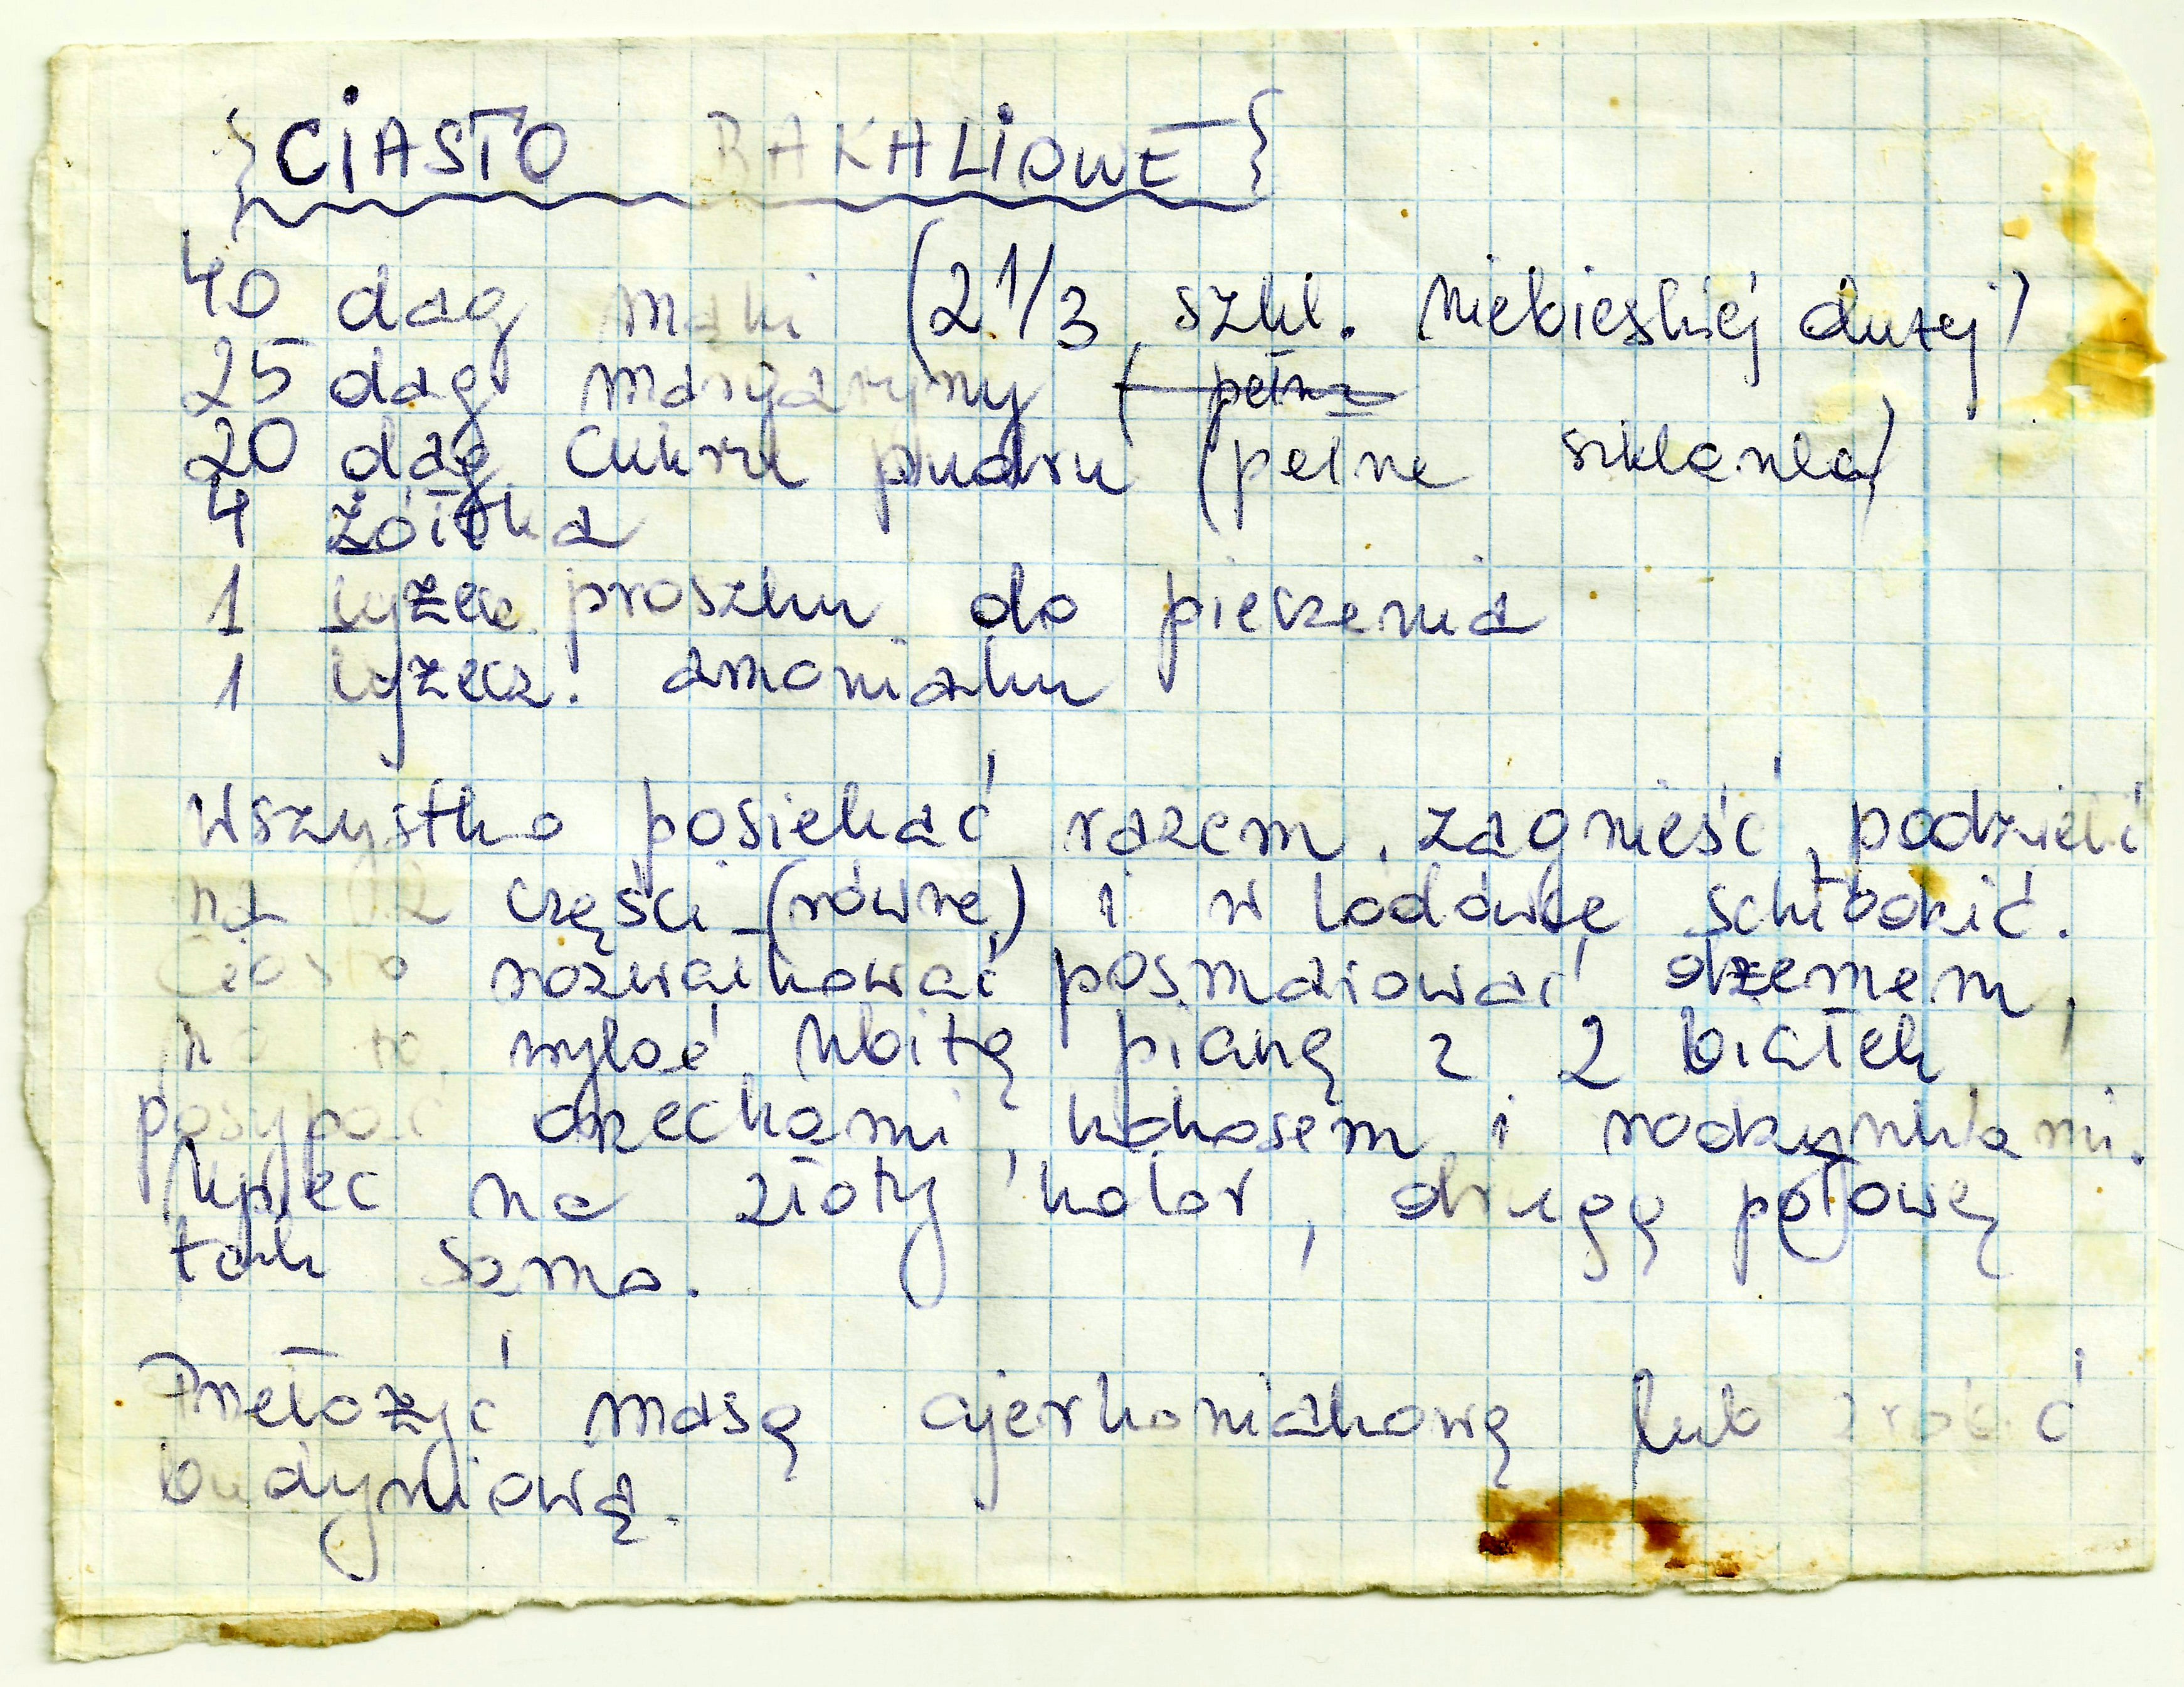 {CIASTO BAKALIOWE}
40 dag mąki (2 1/3 szkl. niebieskiej dużej)
25 dag margaryny ( pełna
20 dag cukru pudru (pełna szklanka)
4 żółtka
1 łyżecz. proszku do pieczenia
1 łyżecz. amoniaku
Wszystko posiekać razem, zagnieść, podzielić
na 2 części (równe) i w lodówce schłodzić.
Ciasto rozwałkować posmarować dżemem,
na to wylać ubitą pianę z 2 białek,
posypać orzechami, kokosem i rodzynkami.
Upiec na złoty kolor, drugą połowę
tak samo.
Przełożyć masą ajerkoniakową lub zrobić
budyniową.